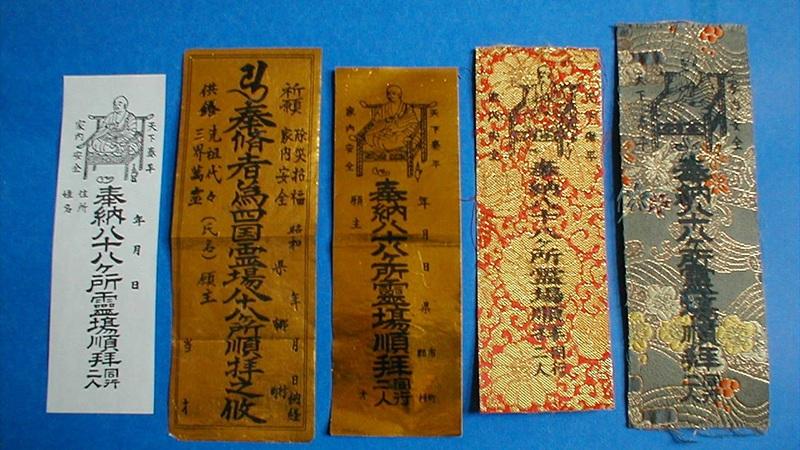 天下泰平
家内安全
年 月 日
奉納八十八ヶ所靈塲順拜同行二人
住所
姓名
祈願
除災招福
家内安全
昭和 年 月 日 納経
県 郷 村
奉脩者為四国霊場八十八ヶ所順拝之攸
供養 先祖代々
三界萬霊
(氏名) 願主
当 才
天下泰平
家内安全
年 月 日 県 市 町
郡 村
奉納八十八ヶ所靈塲順拜同行二人
願主 才
家内安全
奉納八十八ヶ所靈塲順拜同行二人
天下
安全
奉納八十八ヶ所靈塲順拜